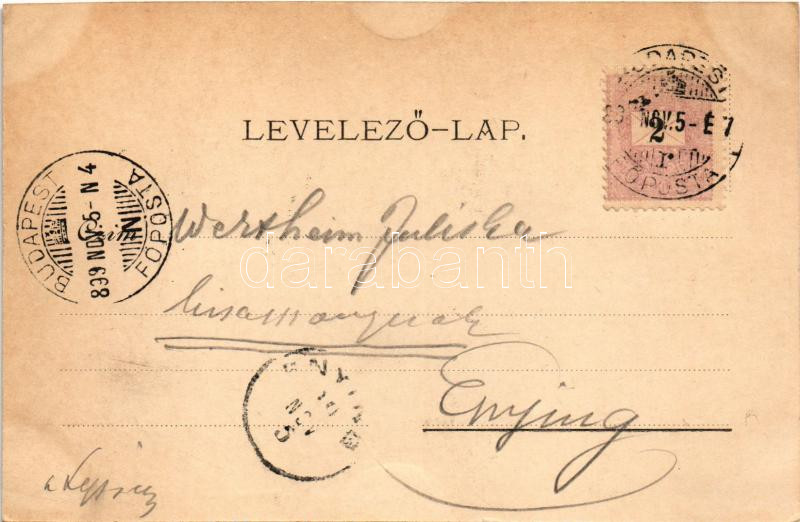 LEVELEZŐ-LAP.
BUDAPEST FŐPOSTA
NOV. 5 - É 7
2
BUDAPEST FŐPOSTA
899 NOV. 5 - N 4
Czim
Wertheim Juliska
kisasszonynak
Enying
ENYING
darabanth